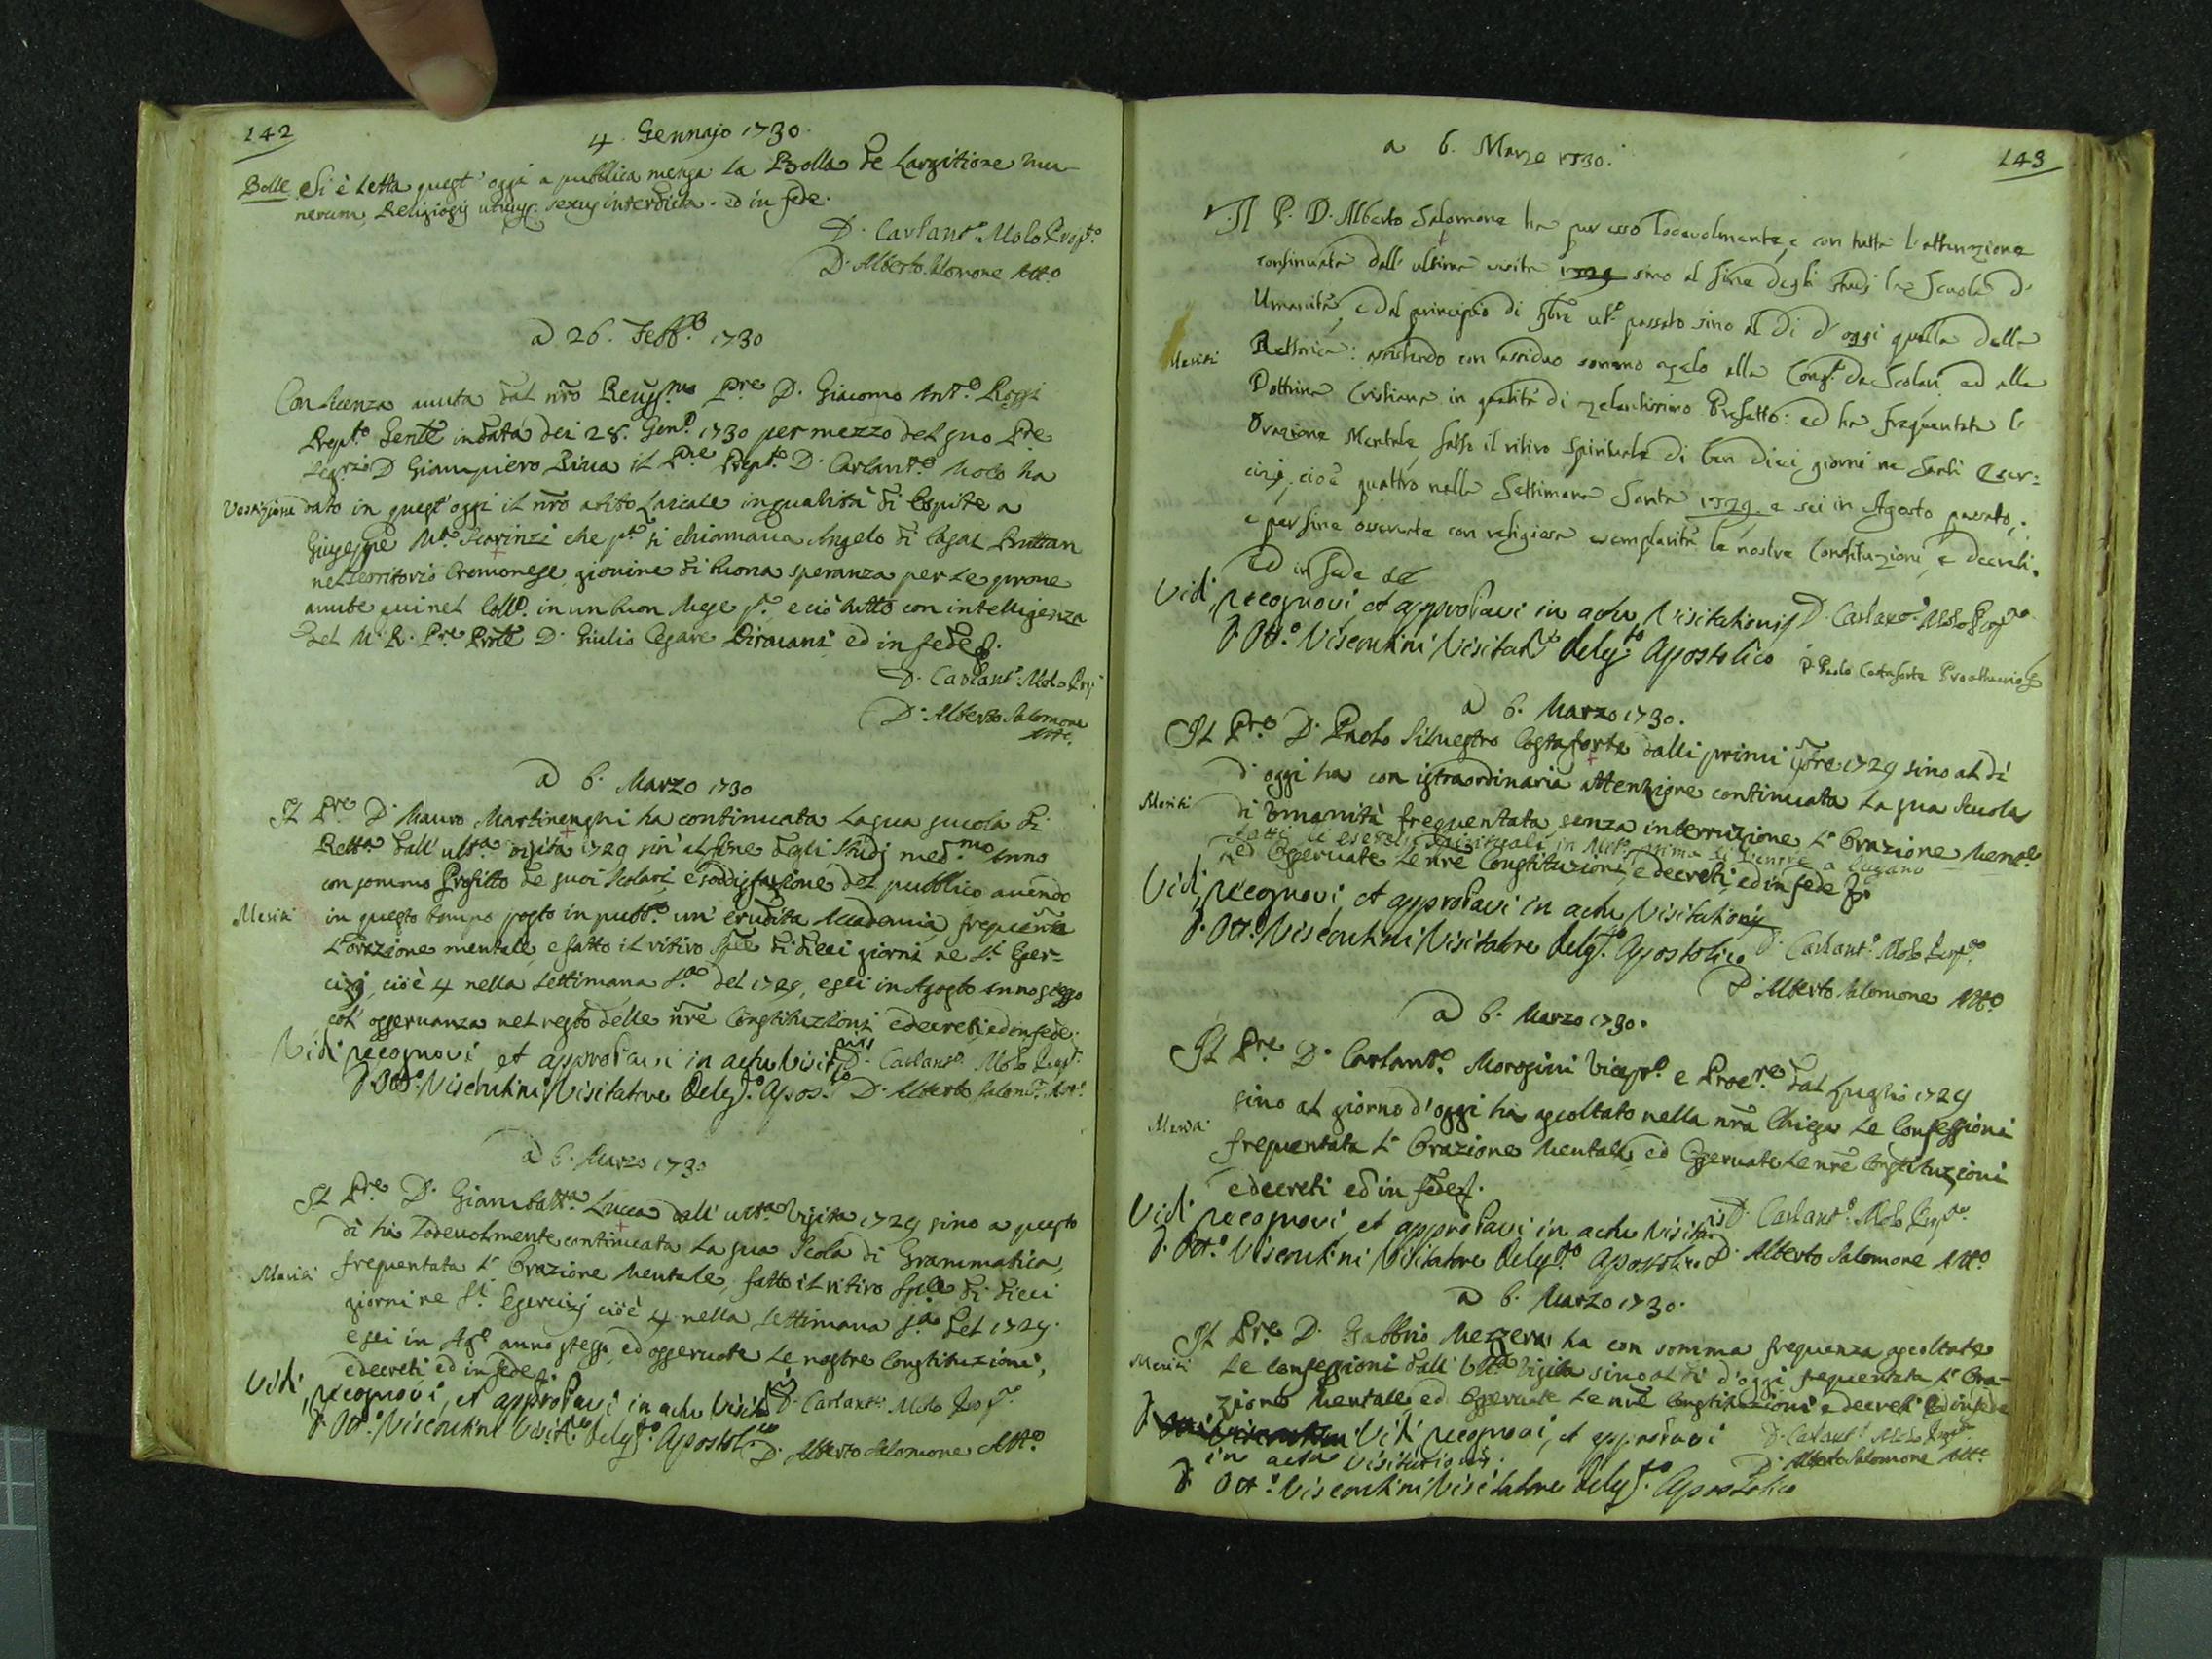 142
4. Gennajo 1730.
Bolle Si è letta quest' oggi a publica mensa la Bolla de Largitione mu-
nerum, Religiosis utriusq. sexus interdicta. ed in fede.
D. Carlant.o Molo Prep.to
D. Alberto Salomone Att.o
a 26. Febb.o 1730
Con licenza avuta dal nr̃o Reuss.mo P.re D. Giacomo Ant.o Rossi
Prep.to Gen̄le in data dei 28. Gen.o 1730 per mezzo del suo P.re
Seg.rio D Giampiero Riva il P.re Prep.to D. Carlant.o Molo ha
Vestizione dato in quest' oggi il nr̃o abito Laicale in qualità di Ospite a
Giuseppe M.a Scarinzi che p.a si chiamava Angelo di Casal Buttan
nel territorio Cremonese, giovine di buona speranza per le prove
avute qui nel Coll.o in un buon Mese p.o e ciò tutto con intelligenza
del M. R. P.re Pro̅le D. Giulio Cesare ed in fede
D. Carlant.o Molo Prep
D. Alberto Salomone
Att.o
a 6. Marzo 1730
Il P.re D. Mauro Martinenghi ha continuata la sua scuola di
Rett.a dall' ult.a visita 1729 sin' al fine degli studj med.mo Anno
con sommo Profitto de suoi Scolari, e soddisfazione del pubblico avendo
Meriti in questo tempo posto in pubb.o un' erudita Accademia, frequente
l'orazione mentale, e fatto il ritiro sp̄le di dieci giorni ne S.ti Eser-
cizj, cioè 4 nella Settimana S.ta del 1729, e sei in Agosto Anno stesso
coll' osservanza nel resto delle nr̃e Constituzioni e decreti, ed in fede.
Vidi, recognovi et approbavi in actu Visit.nis D. Carlant.o Molo Prep.to
D. Ott.o Viscontini Visitatore Deleg.to Apos.co D. Alberto Salom.e Att.o
a 6. Marzo 1730
Il P.re D. Giambatt.a Lucca dall' ult.a Visita 1729 sino a questo
di ha lodevolmente continuata la sua Scola di Grammatica,
Meriti frequentata l' Orazione Mentale, fatto il ritiro sp̄le di dieci
giorni ne S.ti Esercizj cioè 4 nella Settimana S.a del 1729.
e sei in Ag.o anno stesso, ed osservate le nostre Constituzioni,
e decreti, ed in fede
Vidi, recognovi, et approbavi in actu Visit.nis D. Carlant.o Molo Prep.to
D. Ott.o Viscontini Visit.re Deleg.to Apostol.co D. Alberto Salomone Att.o
143
a 6. Marzo 1730.
Il P. D. Alberto Salomone ha pur esso lodevolmente, e con tutta l'attenzione
continuata dall' ultima visita 1729 sino al fine degli studj la Scuola d'
Umanità, e dal principio di 9bre ult.o passato sino al dì d' oggi quella della
Meriti Rettorica: assistendo con assiduo sommo zelo alla Cong.e de Scolari ed alla
Dottrina Cristiana in qualità di zelantissimo Prefetto: ed ha frequentata l'
Orazione Mentale, fatto il ritiro Spirituale di ben dieci giorni ne Santi Eser=
cizj, cioè quattro nella Settimana Santa 1729. e sei in Agosto passato,
e per fine osservate con religiosa esemplarità le nostre Constituzioni, e decreti.
Ed in fede
Vidi, recognovi, et approbavi in actu Visitationis D. Carlant.o Molo Prep.to
D. Ott.o Viscontini Visitat.re Deleg.to Apostolico D. Paolo Costaforte Proattuario
a 6. Marzo 1730.
Il P.re D. Paolo Silvestro Costaforte dalli primi 9bre 1729 sino al dì
d' oggi ha con istraordinaria attenzione continuata la sua Scuola
Meriti di Umanità frequentata senza interruzione l' Orazione Ment.e
fatti li esercizj spirituali in prima di venire a Lugano
ed osservate le nr̃e Constituzioni, e decreti, ed in fede
Vidi, recognovi, et approbavi in actu Visitationis
D. Ott.o Viscontini Visitatore Deleg.to Apostolico D. Carlant.o Molo Prep.to
D. Alberto Salomone Att.o
a 6. Marzo 1730.
Il P.re D. Carlant.o Morosini Vicep.o e Proc.re dal Luglio 1729
sino al giorno d'oggi ha ascoltato nella nr̃a Chiesa le Confessioni
Meriti frequentata l' Orazione Mentale, ed osservate le nr̃e Constituzioni
e decreti ed in fede
Vidi, recognovi, et approbavi in actu Visit.nis D. Carlant.o Molo Prep.to
D. Ott.o Viscontini Visitatore Deleg.to Apostolico D. Alberto Salomone Att.o
a 6. Marzo 1730.
Il P.re D. Gabbrio Mezzera ha con somma frequenza ascoltate
Meriti le confessioni dall' Ult.a Visita sino al dì d'oggi frequentata l' Ora-
zione Mentale, ed osservate le nr̃e Constituzioni e decreti ed in fede
Vidi recognovi, et approbavi D. Carlant.o Molo Prep.to
in actu Visitationis. D. Alberto Salomone Att.o
D. Ott.o Viscontini Visitatore Deleg.to Apostolico